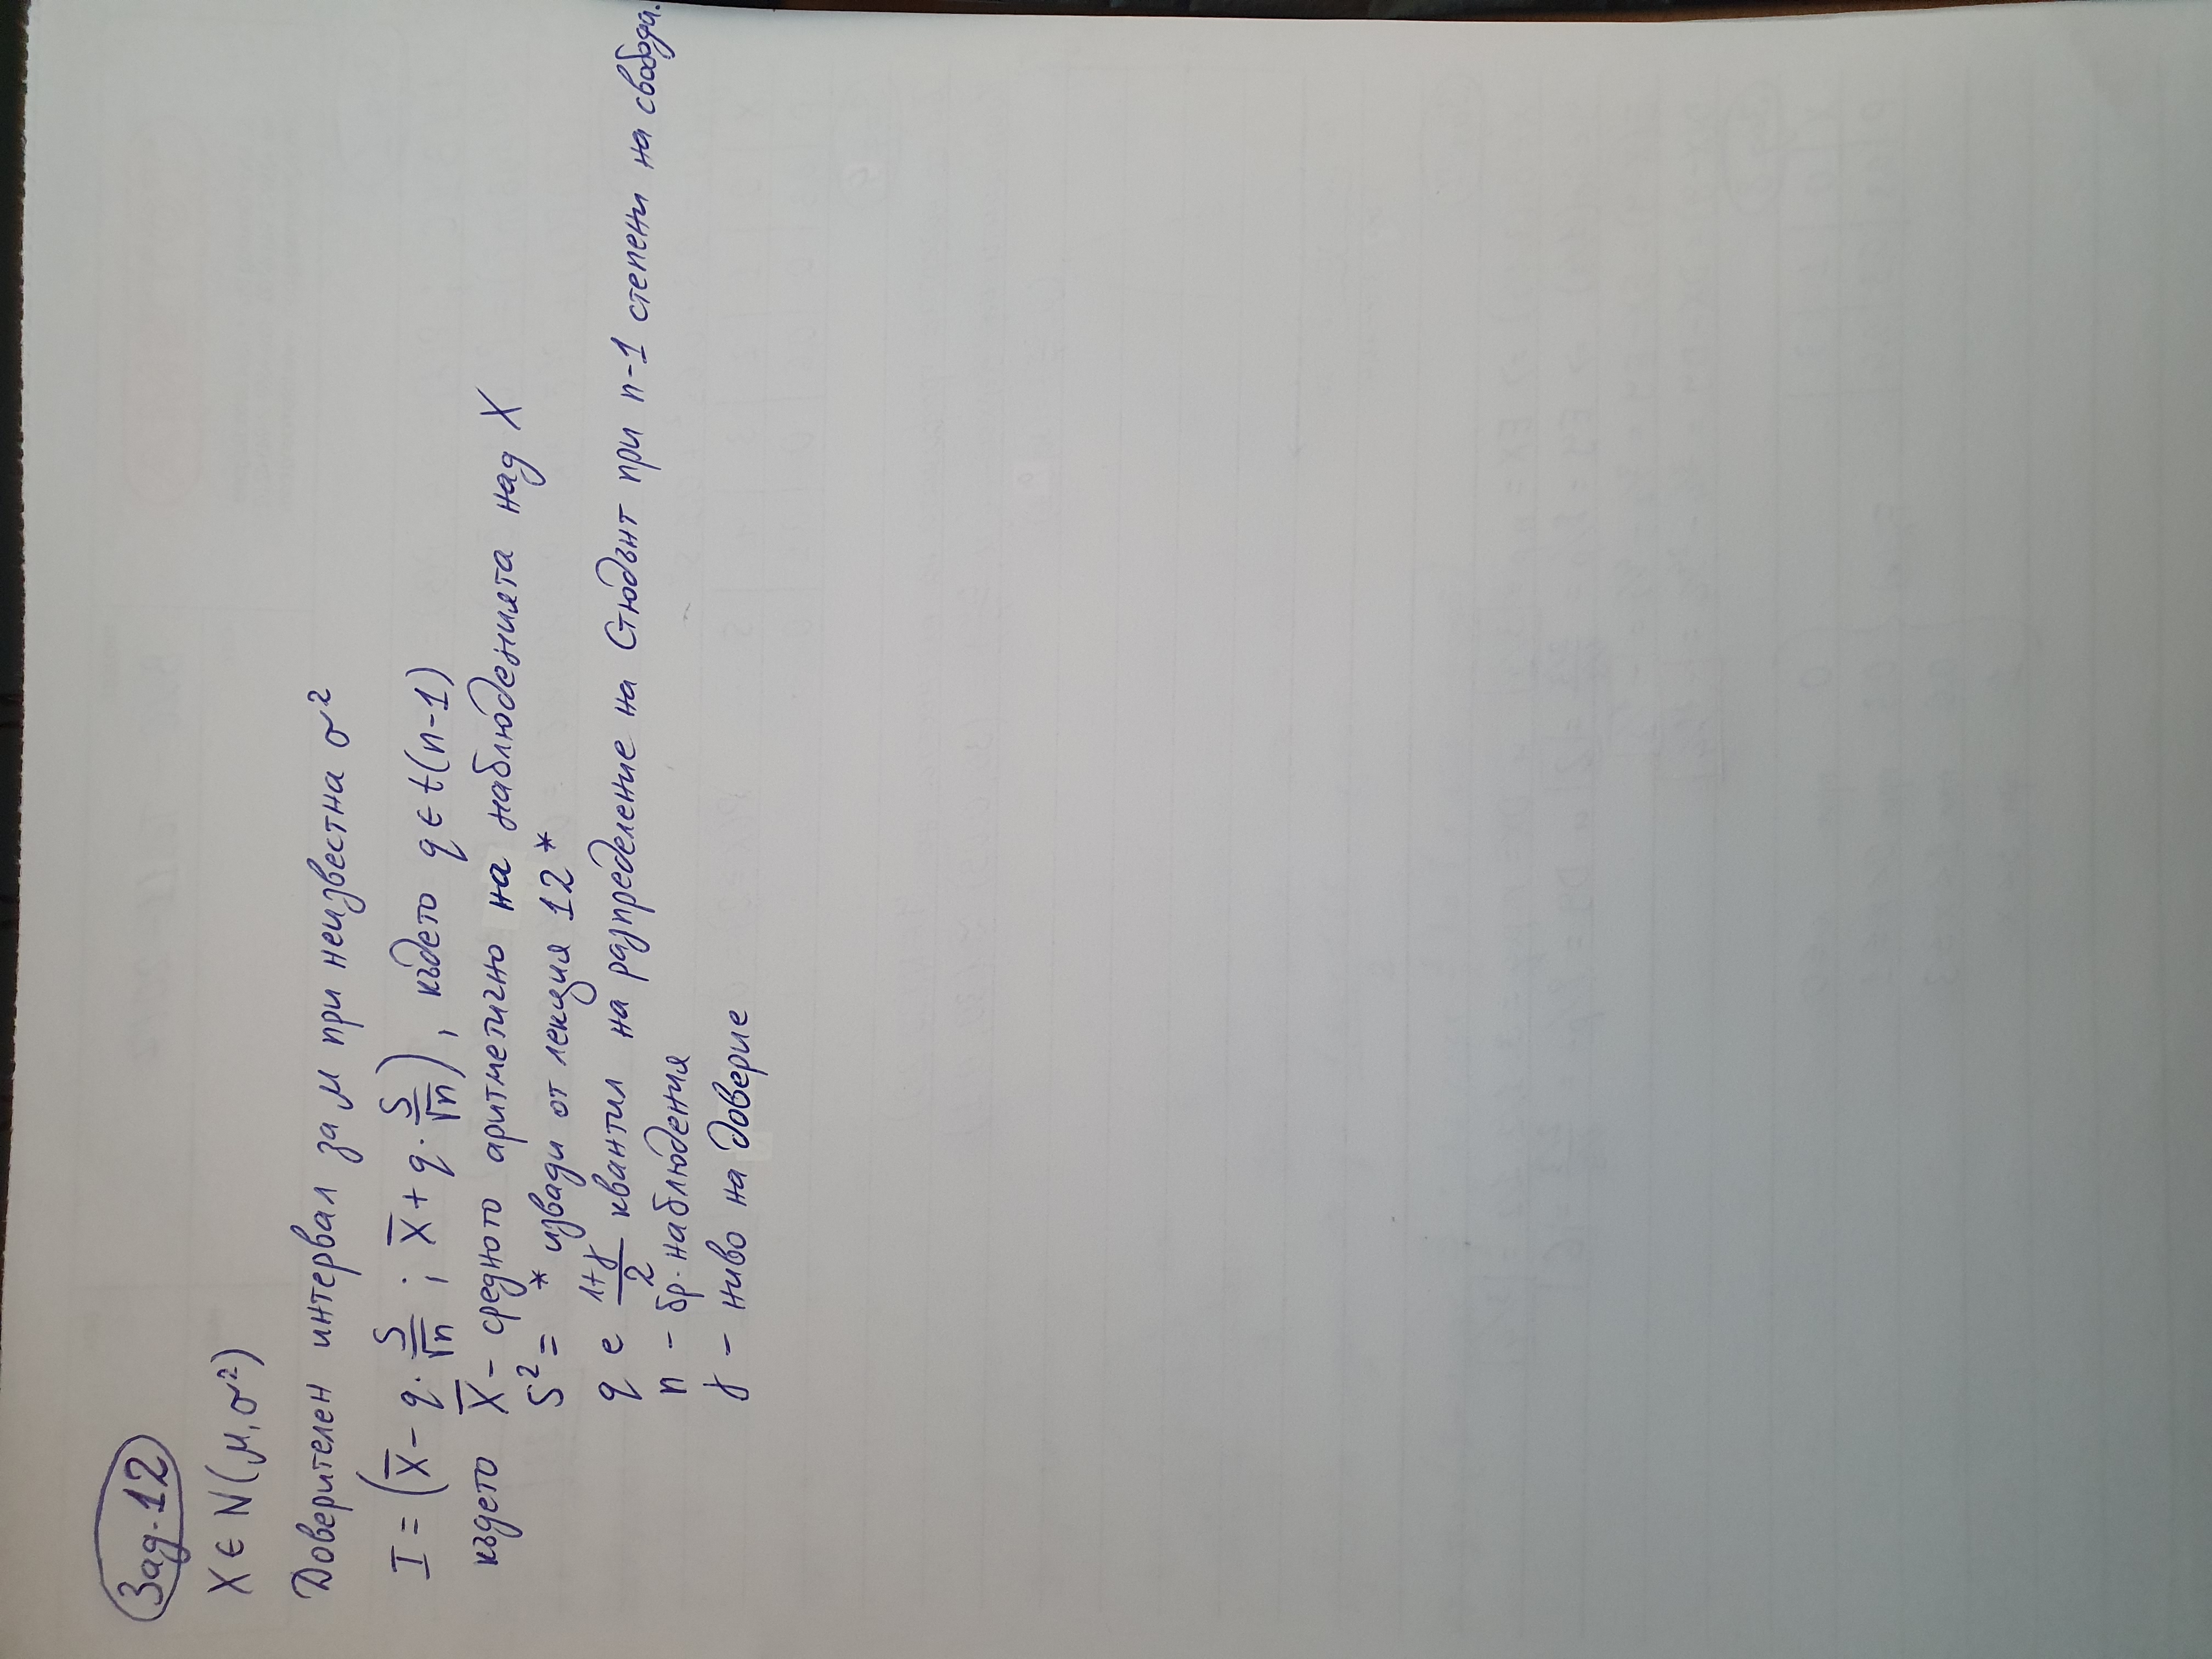 Зад. 12
X ∈ N(μ, σ²)
Доверителен интервал за μ при неизвестна σ²
I = (X̅ - q. S/√n ; X̅ + q. S/√n), където q ∈ t(n-1)
където X̅ - средното аритметично на наблюденията над X
S² = * извади от лекция 12 *
q е (1+γ)/2 квантил на разпределение на Стюдънт при n-1 степени на свобода.
n - бр. наблюдения
γ - ниво на доверие